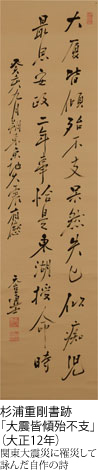 大厦皆傾殆不支 果然失色似痴児
最思安政二年事 恰是東湖授命時
杉浦重剛書跡
「大震皆傾殆不支」
（大正12年）
関東大震災に罹災して
詠んだ自作の詩